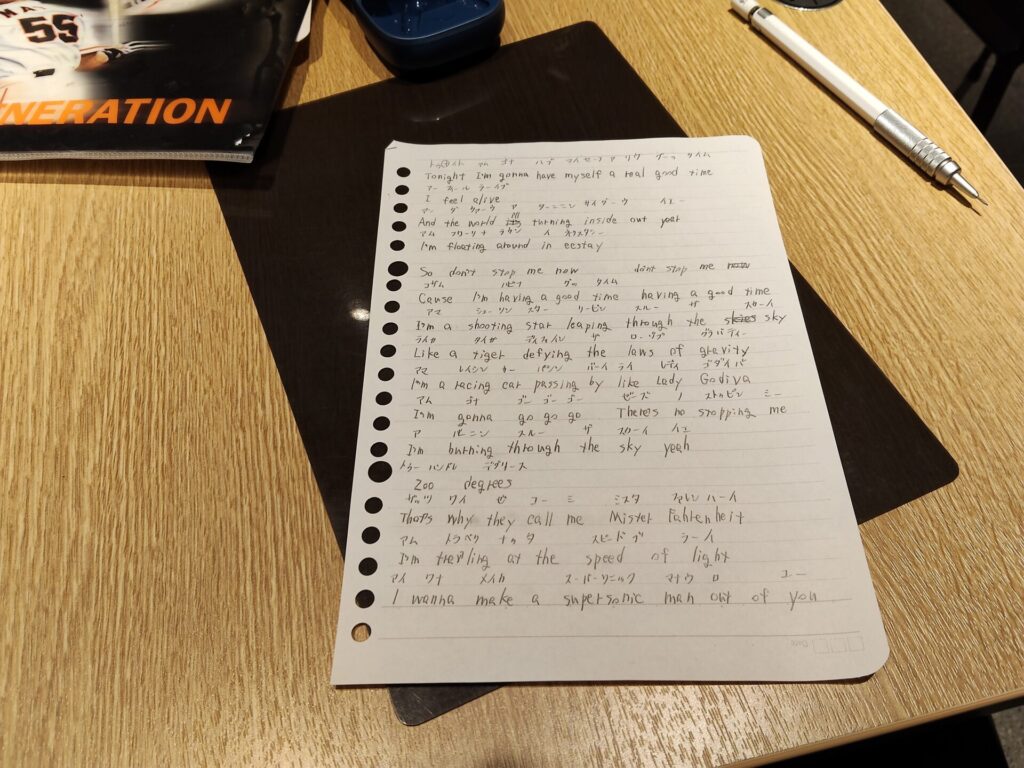 55
NERATION
トゥナイト アム ゴナ ハブ マイセーフ ア リウ グーッ タイム
Tonight I'm gonna have myself a real good time
アー フィール ラーイブ
I feel alive
アー ダ ワァーウ ア ターニニン サイダーウ イェー
And the world turning inside out year
アム フローリナ ラウン イ ネクスタシー
I'm floating around in ecstay
So don't stop me now don't stop me now
コザム ハビナ グッ タイム
Cause I'm having a good time having a good time
アマ シューリン スター リーピン スルー ザ スカーイ
I'm a shooting star leaping through the skies sky
ライカ タイガ ディファイン ザ ローッブ グラバティー
Like a tiger defying the laws of gravity
アマ レイシン カー パシン バーイ ライ レディ ゴダイバ
I'm a racing car passing by like Lady Godiva
アム ゴナ ゴー ゴー ゴー ゼーズ ノ ストッピン ミー
I'm gonna go go go There's no stopping me
ア バーニン スルー ザ スカーイ イェ
I'm burning through the sky yeah
トゥー ハンドレ デグリース
200 degrees
ザッツ ワイ ゼ コー ミ ミスタ ファレンハーイ
That's why they call me Mister Fahrenheit
アム トラベリ ナッダ スピードブ ラーイ
I'm trerling at the speed of light
アイ ワナ メイカ スーパーソニック マナウ ロ ユー
I wanna make a supersonic man out of you
Date